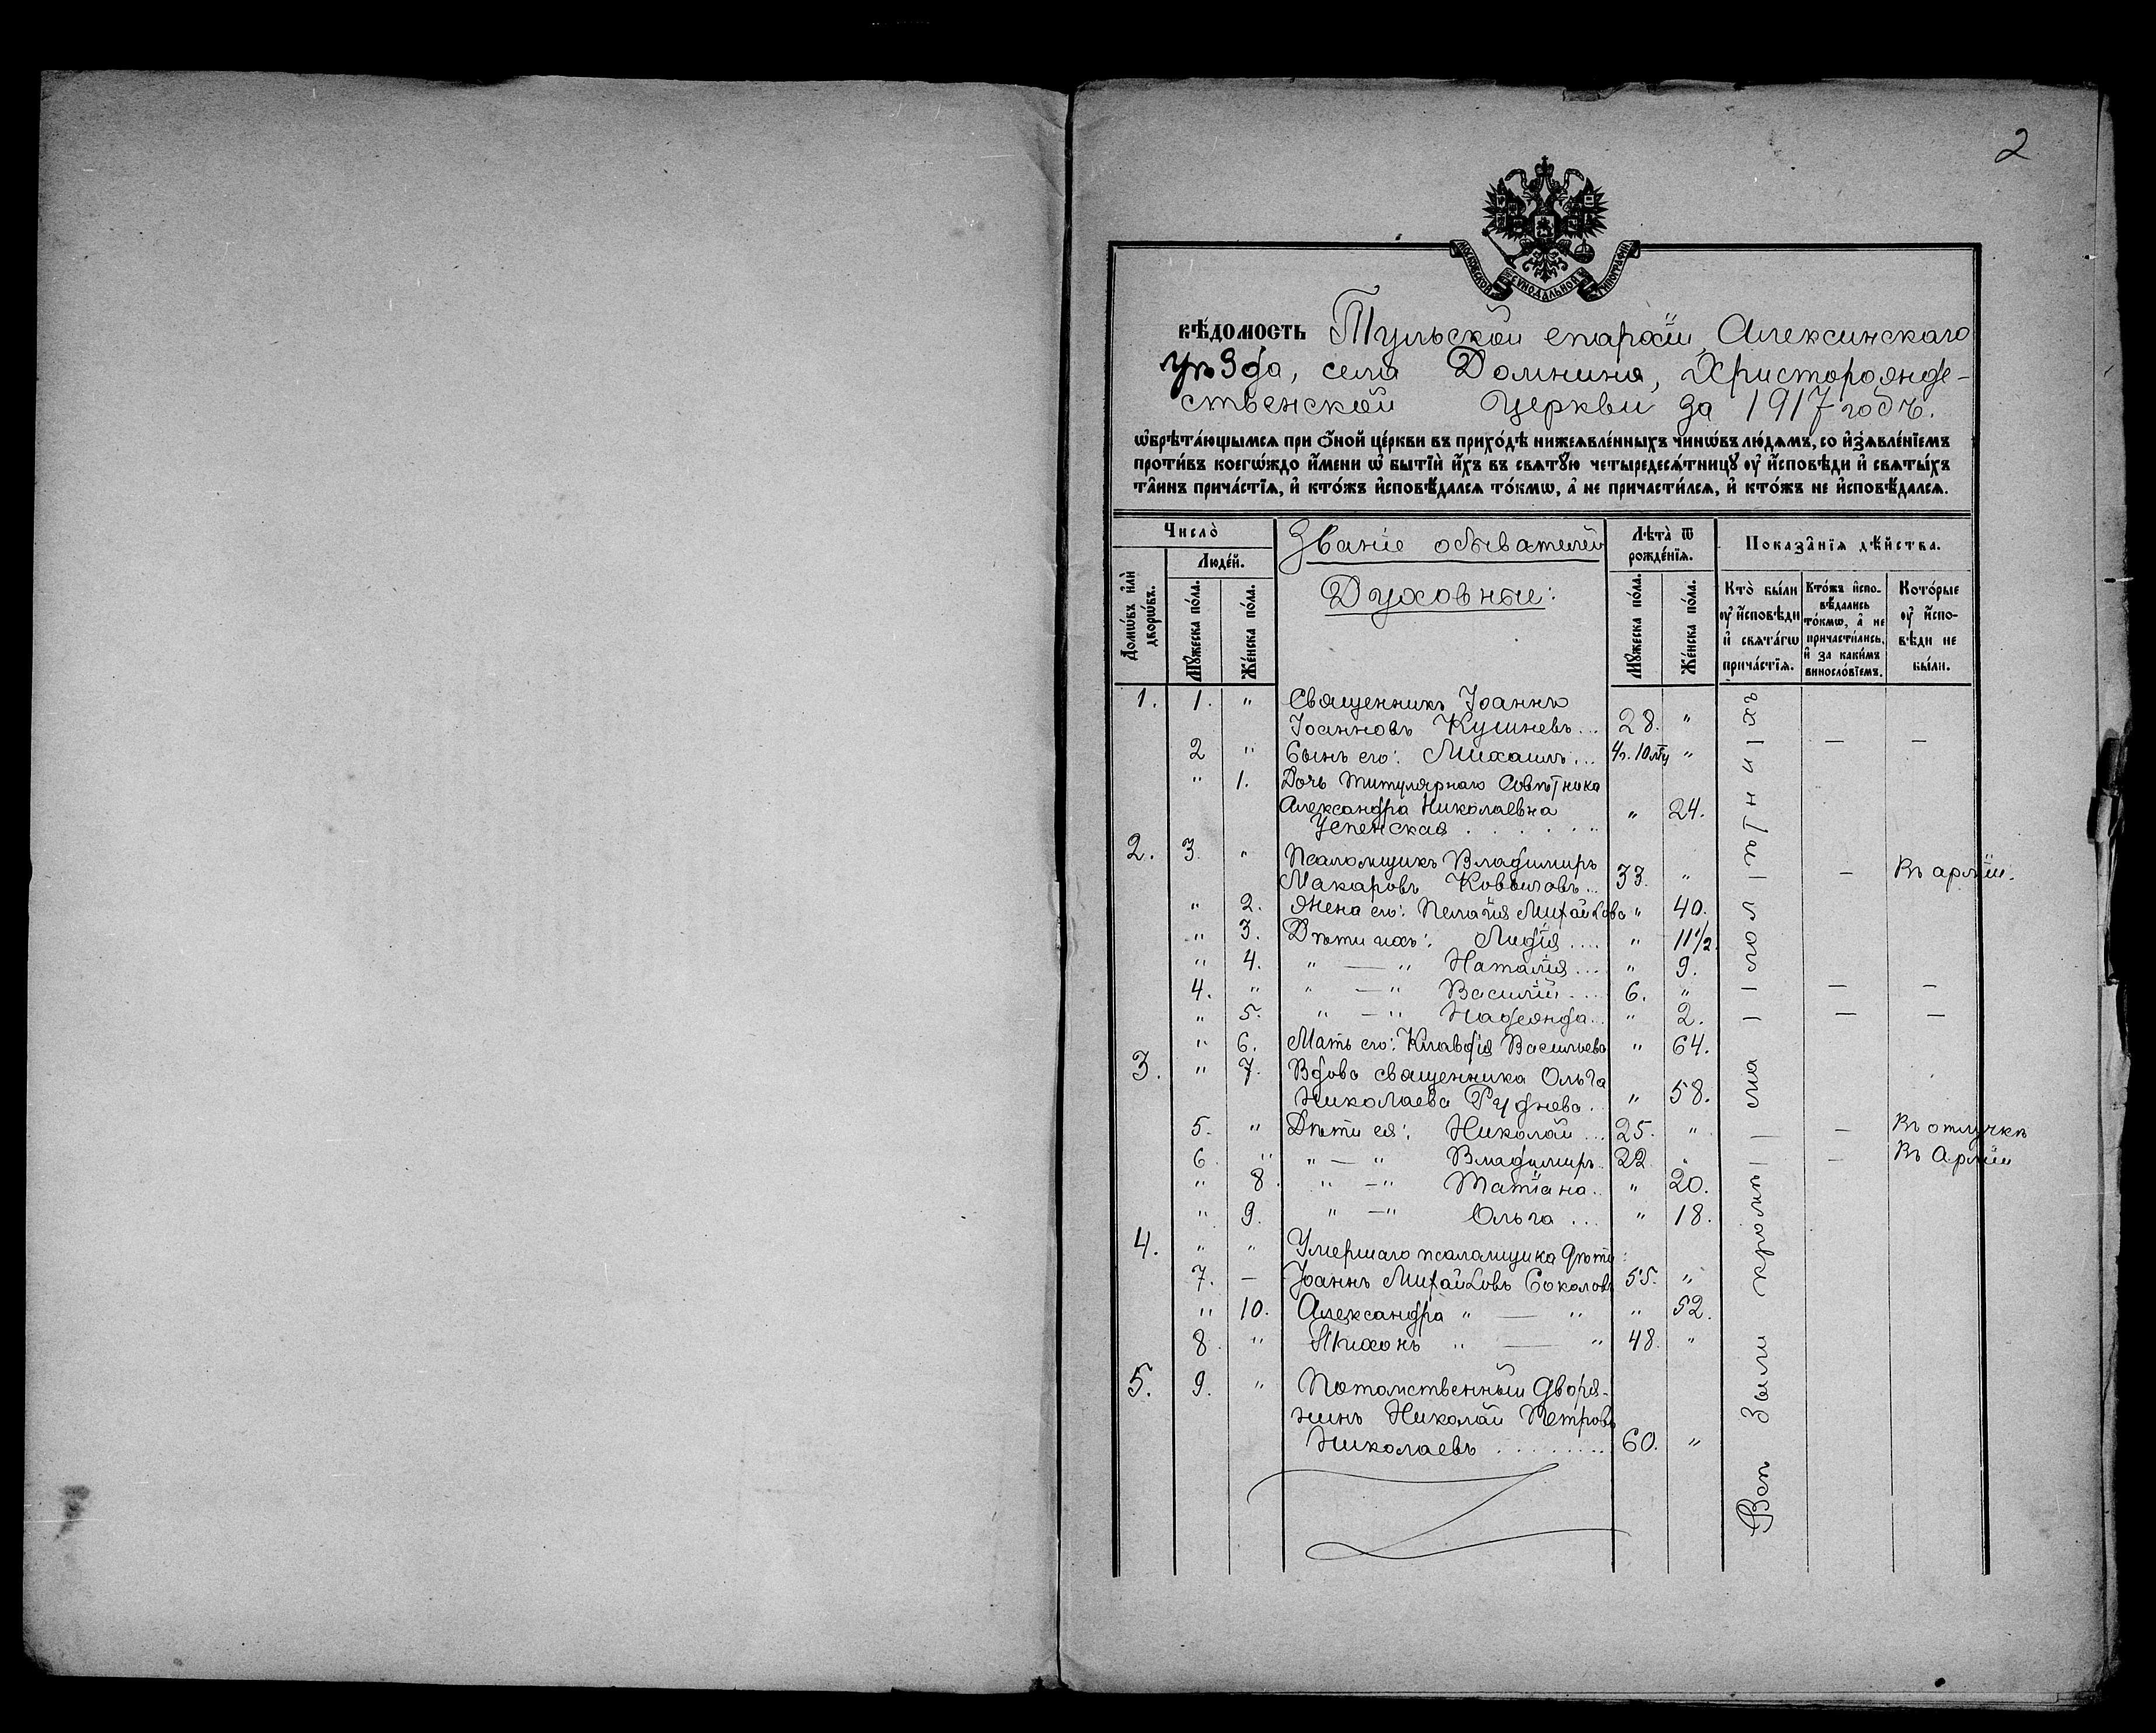 2
МОСКОВСКОЙ СѴНОДАЛЬНОЙ ТИПОГРАФІИ
ВѢ́ДОМОСТЬ Тульской епархіи, Алексинскаго
уѣзда, села Домнина, Христорожде-
ственской церкви за 1917 годъ.
ѡ҆брѣта́ющымсѧ при ѻ҆́ной це́ркви въ прихо́дѣ нижеѧвле́нныхъ чинѡ́въ лю́дѧмъ, со и҆з̾ѧвле́нїемъ
проти́въ коегѡ́ждо и҆́мени ѡ҆ бытїѝ и҆́хъ въ свѧтꙋ́ю четыредесѧ́тницꙋ ᲂу҆ и҆́сповѣди и҆ свѧты́хъ
та̑инъ прича́стїѧ, и҆ кто́жъ и҆сповѣ́далсѧ то́кмѡ, а҆ не причасти́лсѧ, и҆ кто́жъ не и҆сповѣ́далсѧ.
Число̀
Домѡ́въ и҆лѝ дворѡ́въ.
Люде́й.
Мꙋ́жеска по́ла.
Же́нска по́ла.
Званіе обывателей
Духовные:
Лѣ́та ѿ рожде́нїѧ.
Мꙋ́жеска по́ла.
Же́нска по́ла.
Показа̑нїѧ дѣ́йства.
Кто̀ бы́ли ᲂу҆ и҆́сповѣди и҆ свѧта́гѡ прича́стїѧ.
Кто́жъ и҆спо-вѣ́дались то́кмѡ, а҆ не причасти́лись, и҆ за каки́мъ виносло́вїемъ.
Кото́рые ᲂу҆ и҆́спо-вѣди не бы́ли.
1. 1. " Священникъ Іоаннъ
Іоанновъ Кушневъ... 28. "
2 " Сынъ его: Михаилъ... 4г. 10 мѣ " — —
" 1. Дочь титулярнаго Совѣтника
Александра Николаевна " 24.
Успенская . . . . . "
2. 3. " Псаломщикъ Владимиръ
Макаровъ Ковыловъ... 33. " — Въ арміи.
" 2. Жена его: Пелагія Михайлова " 40.
" 3. Дѣти ихъ: Лидія .... " 11½.
" 4. " — " Наталія... " 9.
4. " " — " Василій.... 6. " — —
" 5. " — " Надежда... " 2. — —
" 6. Мать его: Клавдія Васильева " 64.
3. " 7. Вдова священника Ольга
Николаева Руднева. " 58.
5. " Дѣти ея: Николай ... 25. " — Въ отлучкѣ
6. " " — " Владимиръ.. 22. " — Въ Арміи
" 8. " — " Татіана.. " 20.
" 9. " — " Ольга ... " 18.
4. " " Умершаго псаломщика дѣти:
7. — Іоаннъ Михайловъ Соколовъ 55. "
" 10. Александра " — " " 52.
8. " Тихонъ " — " 48. "
5. 9. " Потомственный дворя-
нинъ Николай Петровъ
Николаевъ ........ 60. "
Всѣ были кромѣ | | сма | | лол | ѣтнихъ